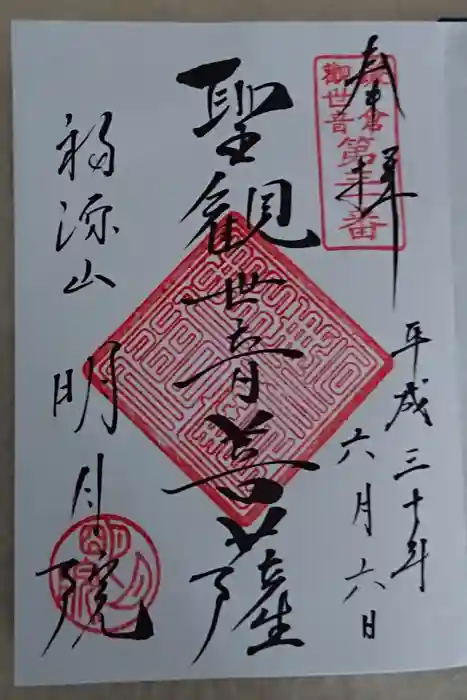 奉拝
鎌倉
観世音
第三十番
平成三十年
六月六日
聖観世音菩薩
福源山
明月院